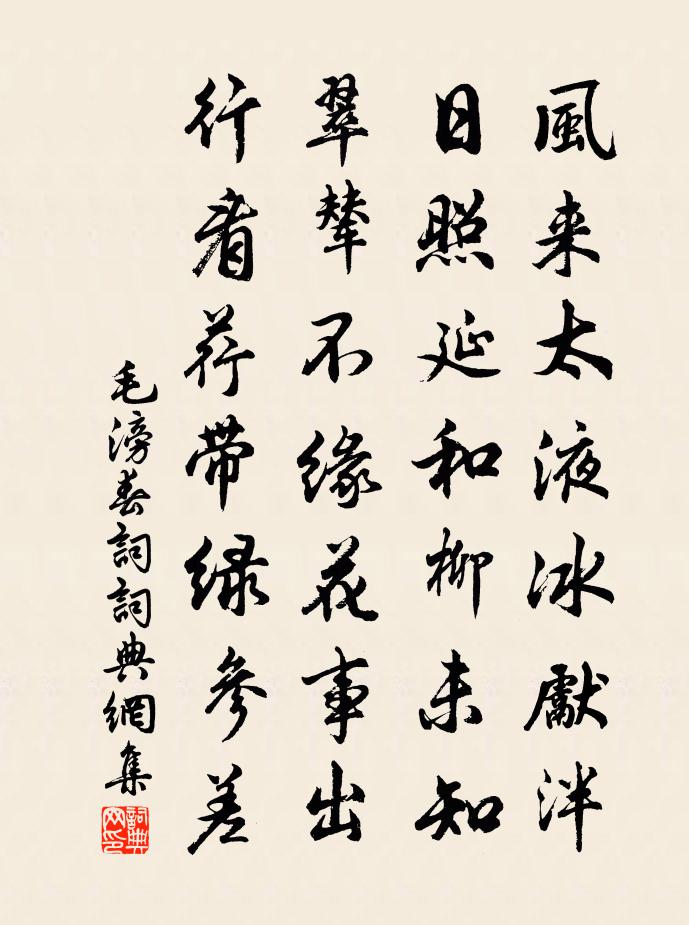 風来太液冰獻泮
日照延和柳未知
翠輦不緣花事出
行看荇帶緑參差
毛滂春詞詞典網集
詞典网印